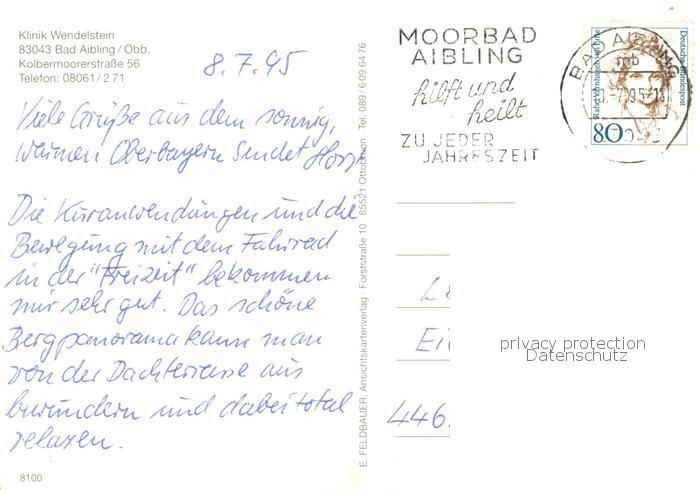 Klinik Wendelstein
83043 Bad Aibling / Obb.
Kolbermoorerstraße 56
Telefon: 08061 / 2 71
8.7.95
Viele Grüße aus dem sonnig,
warmen Oberbayern Sendet Horst
Die Kuranwendungen und die
Bewegung mit dem Fahrrad
in der "Freizeit" bekommen
mir sehr gut. Das schöne
Bergpanorama kann man
von der Dachterrasse aus
bewundern und dabei total
relaxen.
8100
E. FELDBAUER, Ansichtskartenverlag · Forststraße 10 · 85521 Ottobrunn · Tel. 089/6 09 64 76
MOORBAD
AIBLING
hilft und
heilt
ZU JEDER
JAHRESZEIT
BAD AIBLING
mb
Deutsche Bundespost
Rahel Varnhagen von Ense
80
446
privacy protection
Datenschutz